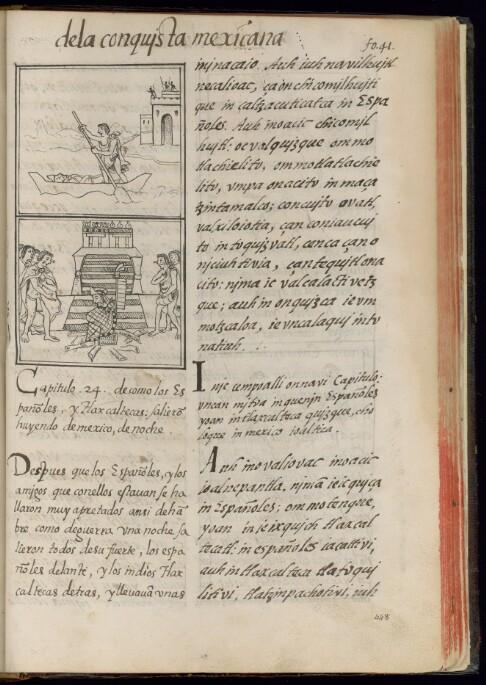 dela conquista mexicana
fo.41.
Capitulo .24. de como los Es
pañoles, y Tlaxcaltecas. salierõ
huyendo de mexico, de noche
Despues que los Españoles, y los
amigos que conellos estauan se ha
llaron muy apretados ansi de hã
bre como deguerra vna noche sa
lieron todos desu fuerte, los espa
ñoles delante, y los indios tlax
caltecas detras, y lleuauã vnas
ininacaio. Auh iuh navilhujtl
necalioac, ça õn chicomilhujti
que in caltzacuticatca in Espa
ñoles. Auh inoacic chicomil
hujtl: oc valquizque ommo
tlachielito, ommotlatlachie
lito, vmpa onacito in maça
tzintamalco; concujto ovatl,
valxiloiotia, çan coniaucui
to in toquizvatl, cenca çan o
njciuhtivia, çan tequitl ona
cito: njma ie valcalactivetz
que; auh in onquizca ie vm
motzcaloa, ie vncalaquj in to
natiuh.
Inje cempoalli onnavi Capitulo:
vncan mjtoa in quenjn Españoles
yoan in tlaxcalteca quizque, cho
loque in mexico ioaltica.
Auh in ovaliovac in oacic
ioalnepantla. njmã ie ic quiça
in Españoles; ommotenque,
yoan in ie ixquich tlaxcal
tecatl: in españoles iacattivi,
auh in tlaxcalteca tlatoquj
litivi, tlatzinpachotivi, iuh
448